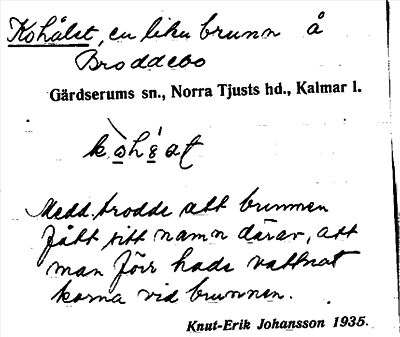 Kohålet, en liten brunn å
Broddebo
Gärdserums sn., Norra Tjusts hd., Kalmar l.
Medd. trodde att brunnen
fått sitt namn därav, att
man förr hade vattnat
korna vid brunnen.
Knut-Erik Johansson 1935.